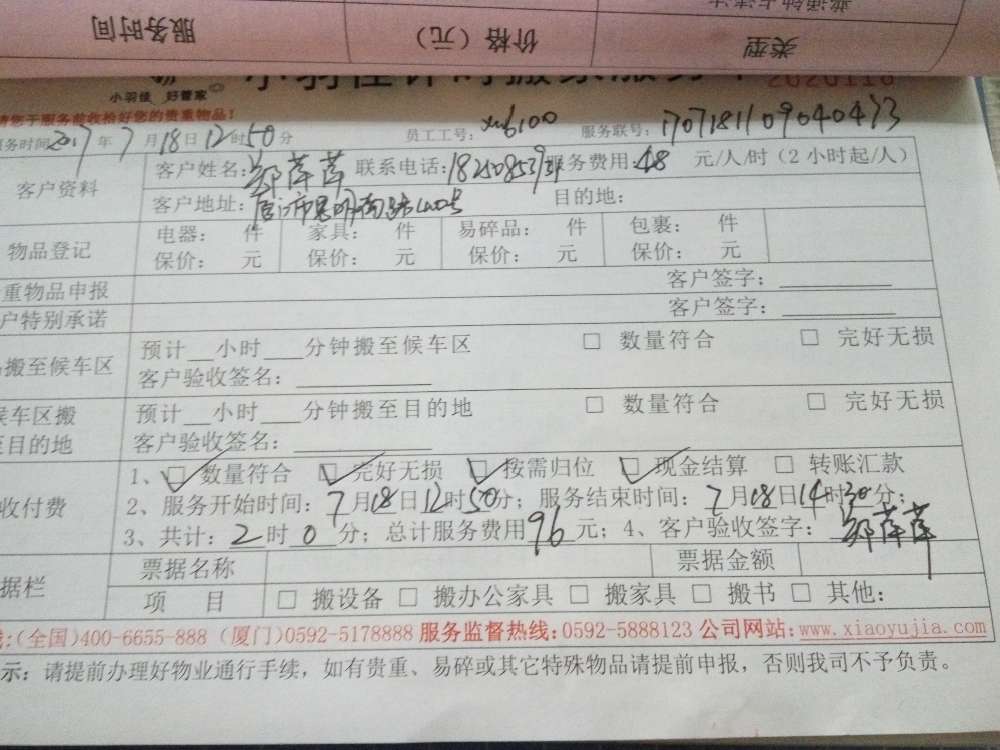 服务时间 价格（元） 类型
小羽佳 好管家
2020118
请您于服务前收拾好您的贵重物品！
服务时间2017年7月18日12时50分 员工工号：xm6100 服务联号：1707181109040433
客户资料
客户姓名： 联系电话： 服务费用：48 元/人/时（2小时起/人）
客户地址： 目的地：
物品登记
电器： 件 家具： 件 易碎品： 件 包裹： 件
保价： 元 保价： 元 保价： 元 保价： 元
重物品申报 客户签字：
户特别承诺 客户签字：
搬至候车区
预计__小时___分钟搬至候车区 □ 数量符合 □ 完好无损
客户验收签名：
候车区搬至目的地
预计__小时___分钟搬至目的地 □ 数量符合 □ 完好无损
客户验收签名：
收付费
1、☑数量符合 ☑完好无损 ☑按需归位 ☑现金结算 □ 转账汇款
2、服务开始时间：7月18日12时50分；服务结束时间：7月18日14时30分；
3、共计：2时0分；总计服务费用96元；4、客户验收签字：
据栏
票据名称 票据金额
项 目 □ 搬设备 □ 搬办公家具 □ 搬家具 □ 搬书 □ 其他：
线:(全国)400-6655-888 (厦门)0592-5178888 服务监督热线:0592-5888123 公司网站:www.xiaoyujia.com
示：请提前办理好物业通行手续，如有贵重、易碎或其它特殊物品请提前申报，否则我司不予负责。